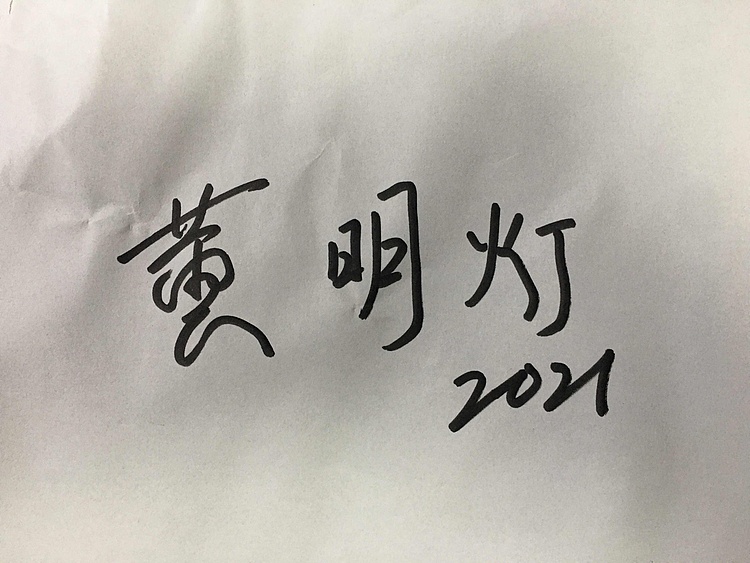 黄明灯
2021